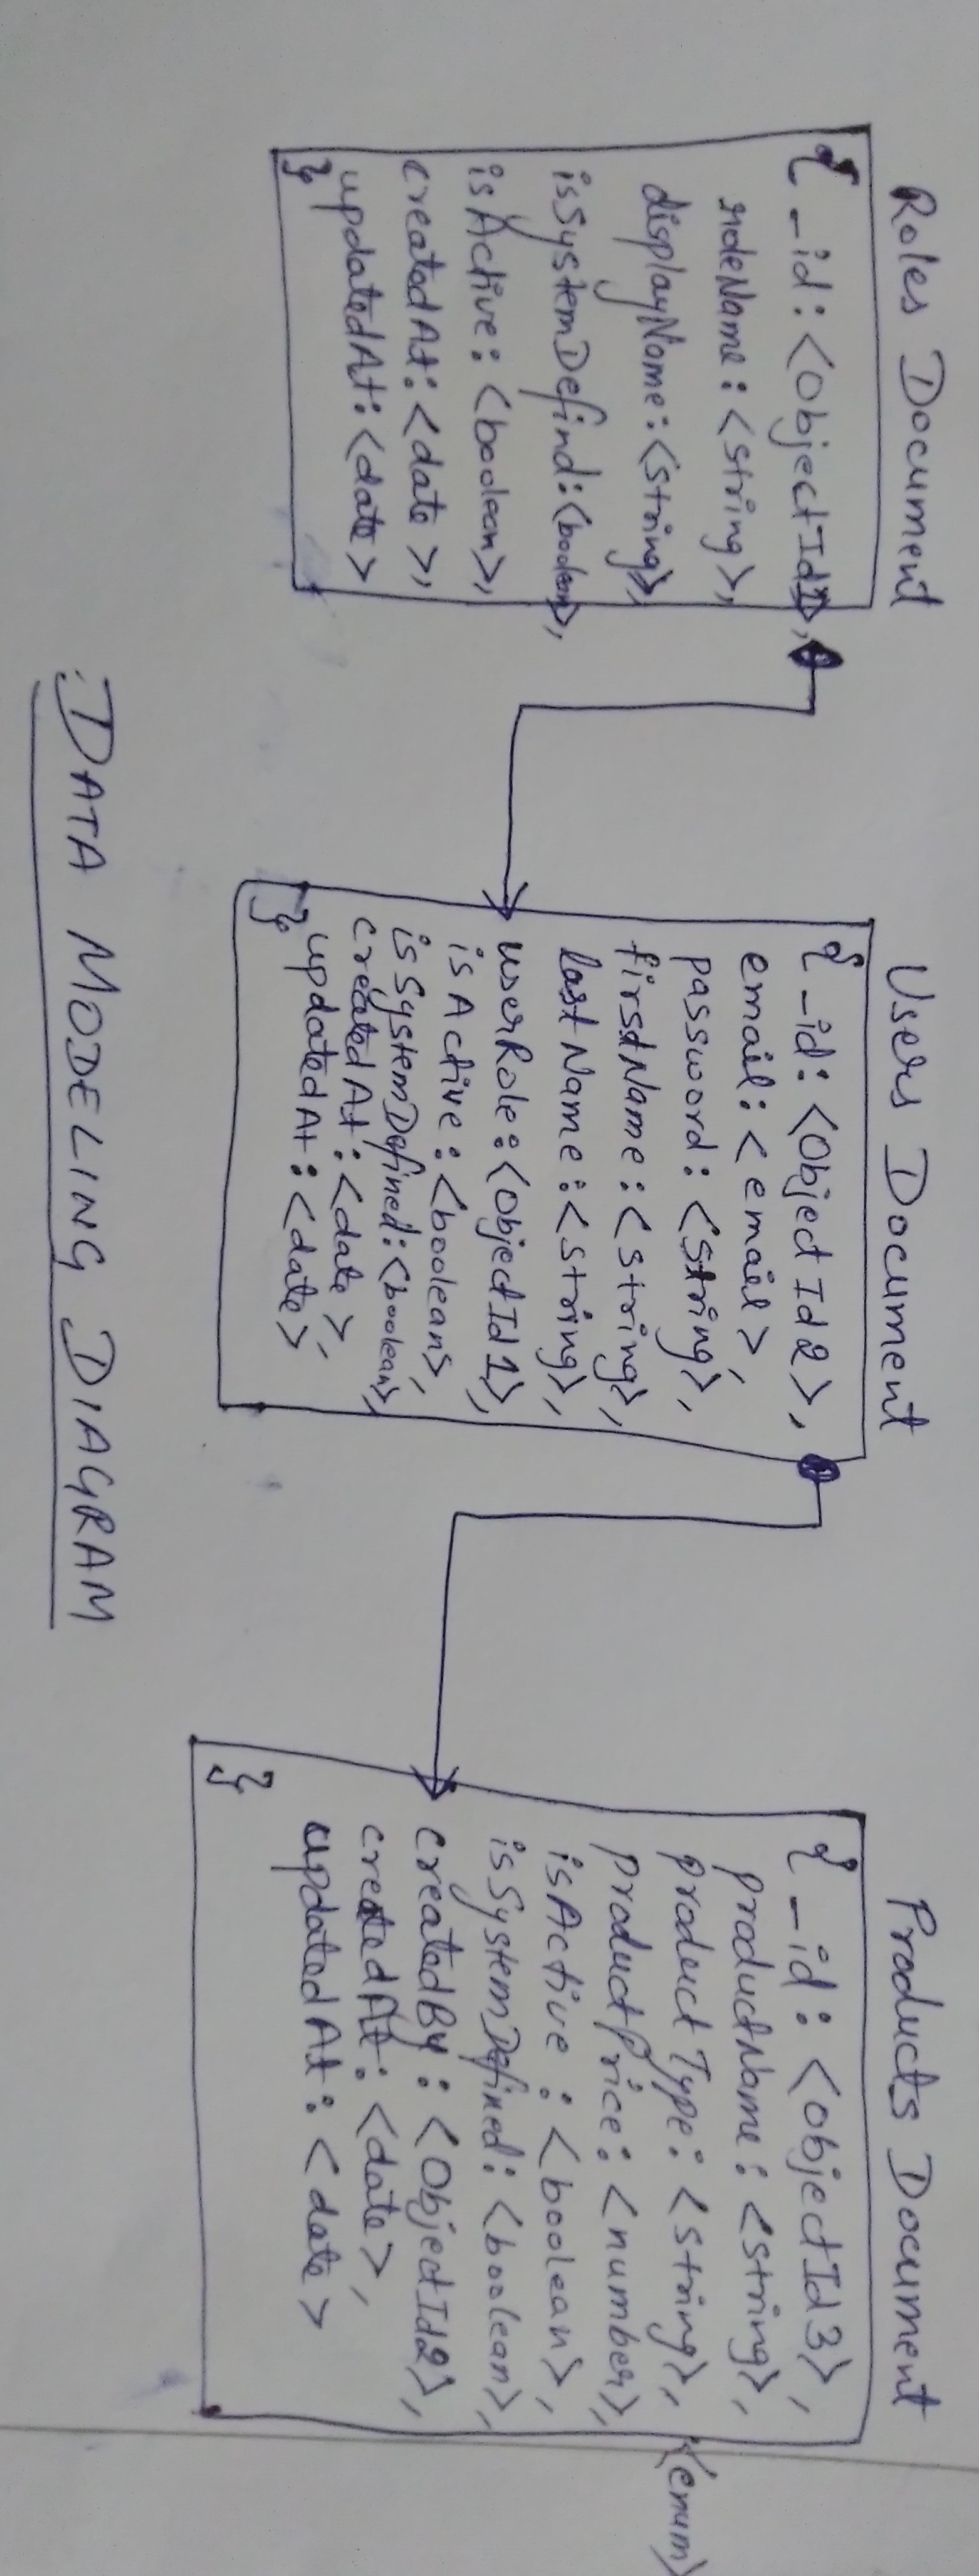 Roles Document
{ _id: <ObjectId1>,
roleName: <string>,
displayName: <string>,
isSystemDefind: <boolean>,
isActive: <boolean>,
createdAt: <date>,
updatedAt: <date>
}
Users Document
{ _id: <ObjectId2>,
email: <email>,
password: <string>,
firstName: <string>,
lastName: <string>,
userRole: <ObjectId1>,
isActive: <boolean>,
isSystemDefined: <boolean>,
createdAt: <date>,
updatedAt: <date>
}
Products Document
{ _id: <objectId3>,
productName: <string>,
productType: <string>, <enum>
productPrice: <number>,
isActive: <boolean>,
isSystemDefined: <boolean>,
createdBy: <ObjectId2>,
createdAt: <date>,
updatedAt: <date>
}
DATA MODELING DIAGRAM